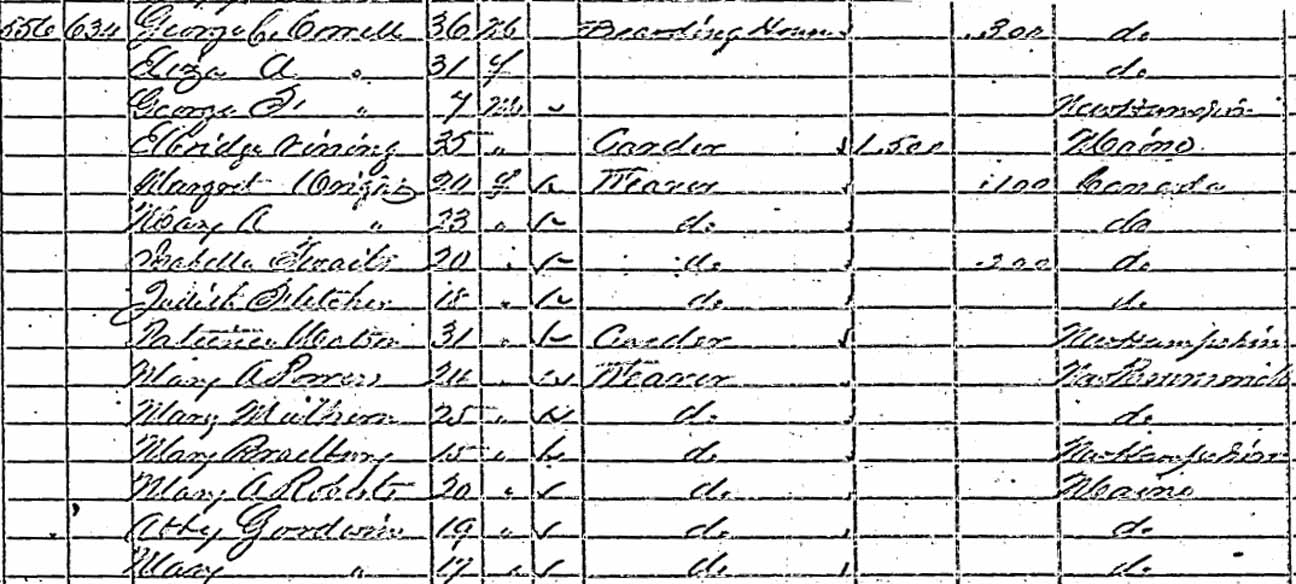 556 634 George C. Correll 36 M Boarding House 300 do
Eliza A " 31 f do
George F " 7 M New Hampshire
Elbridge Vining 35 " Carder 1,500 Maine
Margret Wright 24 f Weaver 100 Canada
Mary A " 23 " do do
Isabella 20 " do 200 do
Judith Fletcher 18 " do do
Watson 31 " Carder New Hampshire
Mary A Powers 24 " Weaver New Brunswick
Mary 25 " do do
Mary Bradbury 15 " do New Hampshire
Mary A Roberts 20 " do Maine
Abby Goodwin 19 " do do
Mary " 17 " do do